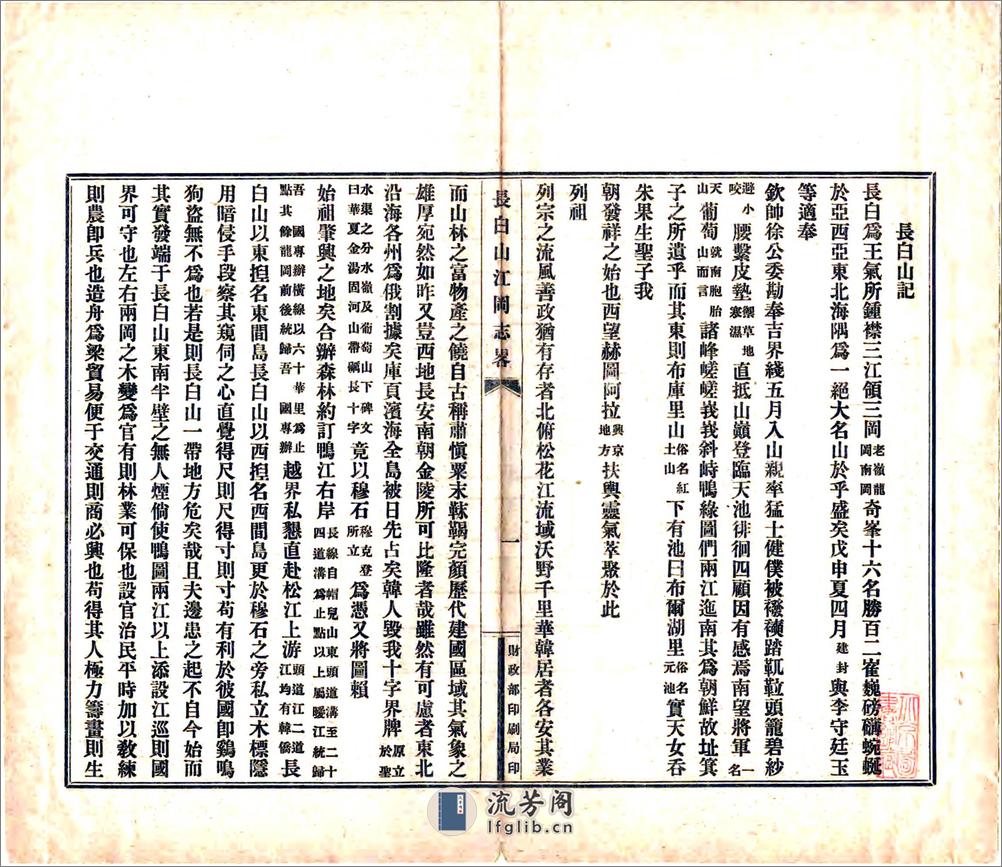 長白山記
長白爲王氣所鍾襟三江領三岡老嶺龍岡南岡奇峯十六名勝百二崔巍磅礴蜿蜒
於亞西亞東北海隅爲一絕大名山於乎盛矣戊申夏四月建封與李守廷玉
等適奉
欽帥徐公委勘奉吉界綫五月入山親率猛士健僕被襏襫踏靰鞡頭籠碧紗
避小咬腰繫皮墊禦草地寒濕直抵山巔登臨天池徘徊四顧因有感焉南望將軍一名
天山葡萄就南胞胎山而言諸峰嵯嵯峩峩斜峙鴨綠圖們兩江迤南其爲朝鮮故址箕
子之所遺乎而其東則布庫里山俗名紅土山下有池曰布爾湖里俗名元池實天女吞
朱果生聖子我
朝發祥之始也西望赫圖阿拉興京地方扶輿靈氣萃聚於此
列祖
列宗之流風善政猶有存者北俯松花江流域沃野千里華韓居者各安其業
長白山江岡志畧
一
財政部印刷局印
而山林之富物產之饒自古稱肅愼粟末靺鞨完顏歷代建國區域其氣象之
雄厚宛然如昨又豈西地長安南朝金陵所可比隆者哉雖然有可慮者東北
沿海各州爲俄割據矣庫頁濱海全島被日先占矣韓人毀我十字界牌原立於聖
水渠之分水嶺及葡萄山下碑文曰華夏金湯固河山帶礪長十字竟以穆石穆克登所立爲憑又將圖賴
始祖肇興之地矣合辦森林約訂鴨江右岸長線自帽兒山東頭道溝至二十四道溝爲止點以上屬曖江統歸
吾國專辦橫線以六十華里爲止點其餘龍岡前後統歸吾國專辦越界私懇直赴松江上游頭道江二道江均有韓僑長
白山以東揑名東間島長白山以西揑名西間島更於穆石之旁私立木標隱
用暗侵手段察其窺伺之心直覺得尺則尺得寸則寸苟有利於彼國卽鷄鳴
狗盜無不爲也若是則長白山一帶地方危矣哉且夫邊患之起不自今始而
其實發端于長白山東南半壁之無人煙倘使鴨圖兩江以上添設江巡則國
界可守也左右兩岡之木變爲官有則林業可保也設官治民平時加以敎練
則農卽兵也造舟爲梁貿易便于交通則商必興也苟得其人極力籌畫則生
流芳阁
lfglib.cn